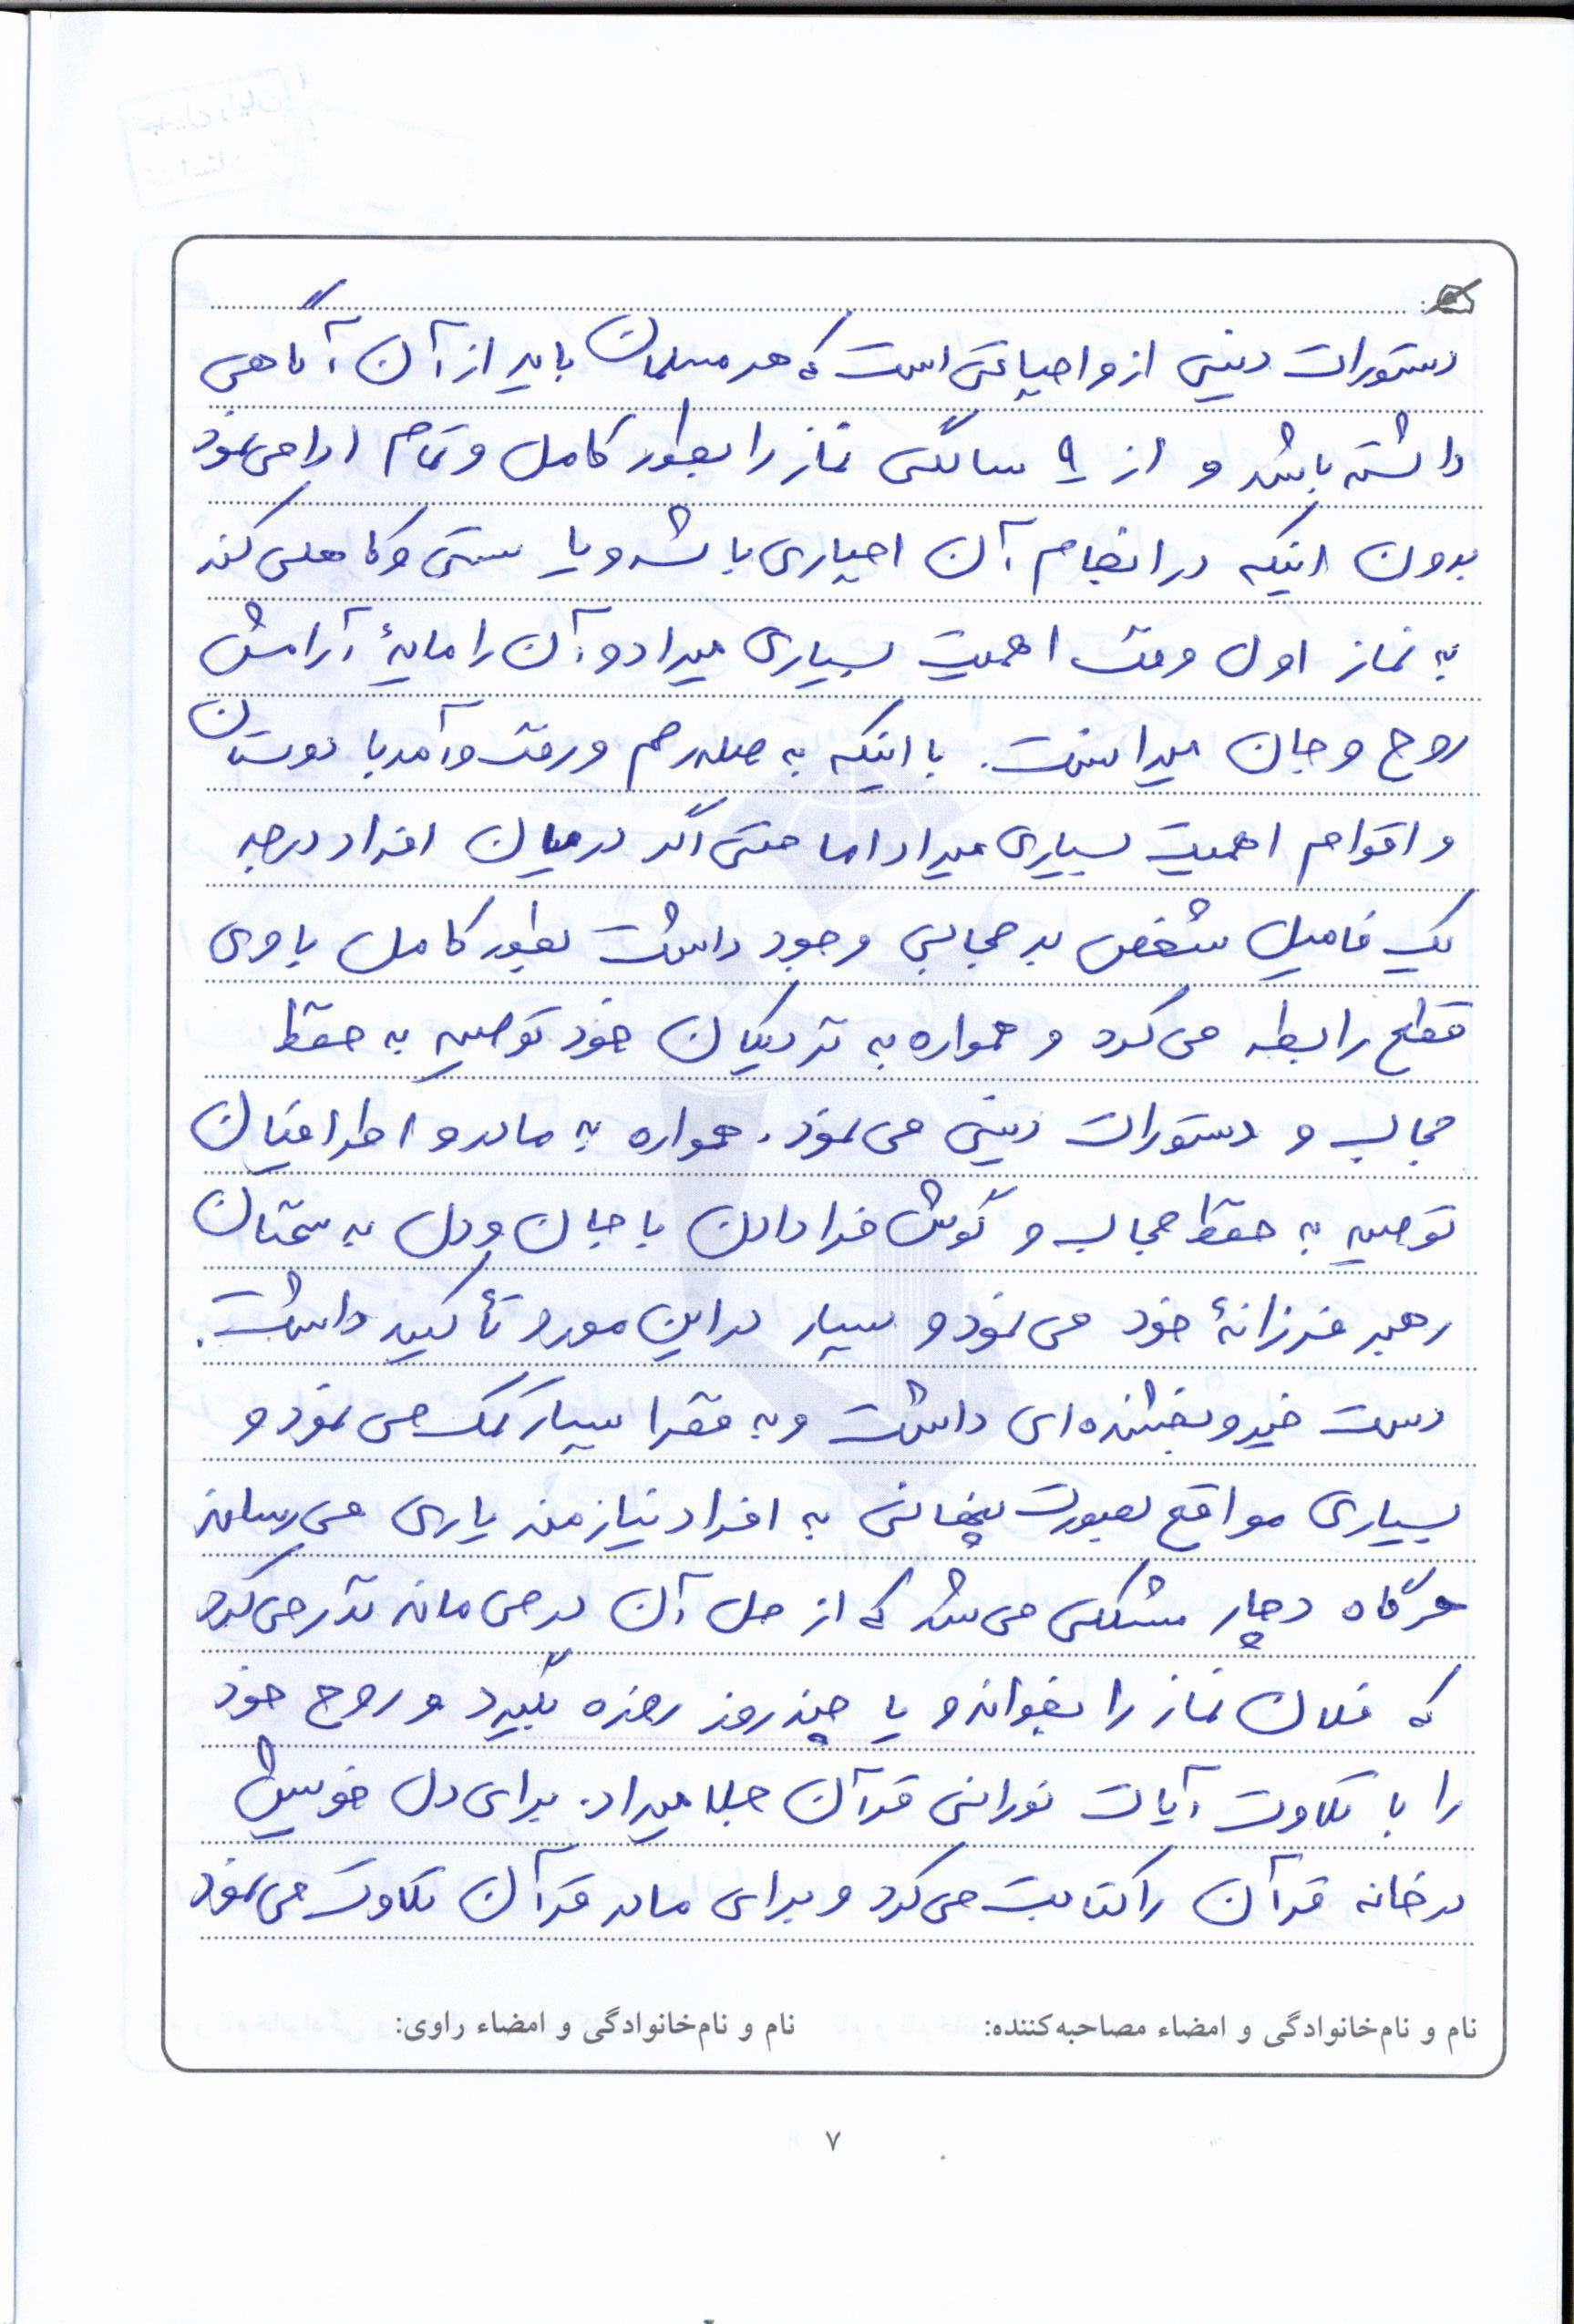 دستورات دینی از واجباتی است که هر مسلمان باید از آن آگاهی
داشته باشد و از ۹ سالگی نماز را بطور کامل و تمام ادا می نمود
بدون اینکه در انجام آن اجباری باشد و یا سستی و کاهلی کند
به نماز اول وقت اهمیت بسیاری میداد و آن را مایهٔ آرامش
روح و جان میدانست. با اینکه به صله رحم و رفت و آمد با دوستان
و اقوام اهمیت بسیاری میداد اما حتی اگر در میان افراد درجه
یک فامیل شخص بدحجابی وجود داشت بطور کامل با وی
قطع رابطه می کرد و همواره به نزدیکان خود توصیه به حفظ
حجاب و دستورات دینی می نمود. همواره به مادر و اطرافیان
توصیه به حفظ حجاب و گوش فرا دادن با جان و دل به سخنان
رهبر فرزانهٔ خود می نمود و بسیار در این مورد تأکید داشت.
دست خیر و بخشنده ای داشت و به فقرا بسیار کمک می نمود و
بسیاری مواقع بصورت پنهانی به افراد نیازمند یاری می رساند
هرگاه دچار مشکلی می شد که از حل آن در می ماند نذر می کرد
که فلان نماز را بخواند و یا چند روز روزه بگیرد و روح خود
را با تلاوت آیات نورانی قرآن جلا میداد. برای دل خویش
در خانه قرآن را کتابت می کرد و برای مادر قرآن تلاوت می نمود
نام و نام‌خانوادگی و امضاء مصاحبه‌کننده: نام و نام‌خانوادگی و امضاء راوی:
۷